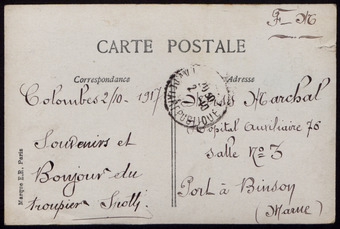 F. M
CARTE POSTALE
Correspondance
Adresse
Colombes 2/10 - 1917
Souvenirs et
Bonjour du
troupier
Marchal
Hôpital Auxiliaire 75
Salle No 3
Port à Binson
(Marne)
REPUBLIQUE
Marque E.R. Paris